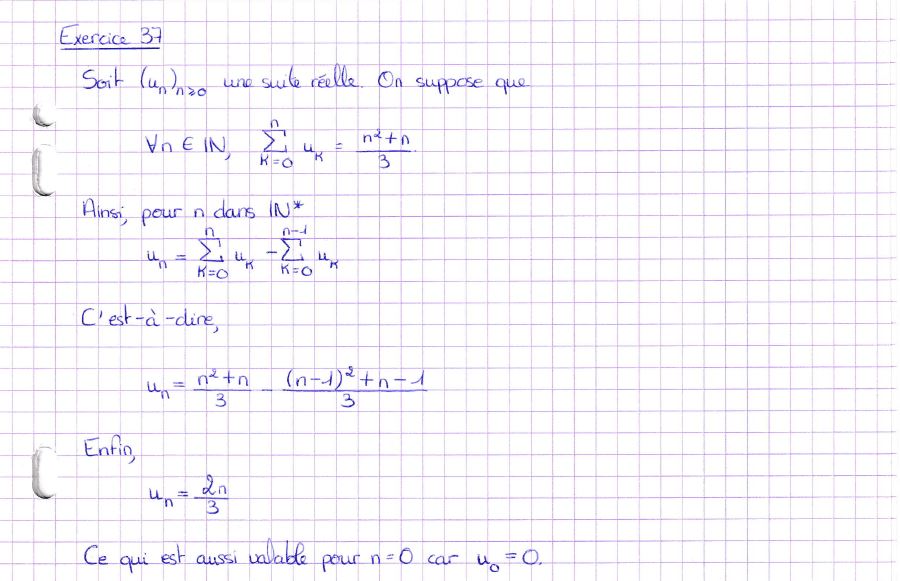 Exercice 37
Soit (uₙ)ₙ≥₀ une suite réelle. On suppose que
∀n ∈ ℕ, ∑_{K=0}^{n} u_K = (n²+n)/3.
Ainsi, pour n dans ℕ*
uₙ = ∑_{K=0}^{n} u_K - ∑_{K=0}^{n-1} u_K
C'est-à-dire,
uₙ = (n²+n)/3 - ((n-1)²+n-1)/3
Enfin,
uₙ = 2n/3
Ce qui est aussi valable pour n=0 car u₀ = 0.